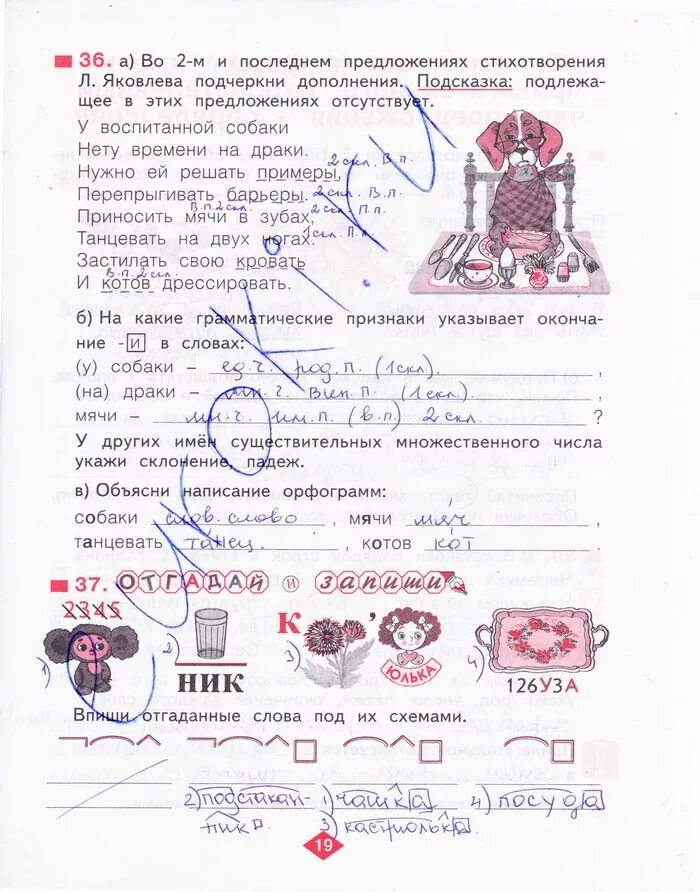 36. а) Во 2-м и последнем предложениях стихотворения
Л. Яковлева подчеркни дополнения. Подсказка: подлежа-
щее в этих предложениях отсутствует.
У воспитанной собаки
Нету времени на драки.
2 скл. В.п.
Нужно ей решать примеры,
Перепрыгивать барьеры. 2 скл. В.п.
В.п. 2 скл.
Приносить мячи в зубах, 2 скл. П.п.
Танцевать на двух ногах. 1 скл. П.п.
Застилать свою кровать
В.п. 2 скл.
И котов дрессировать.
б) На какие грамматические признаки указывает оконча-
ние -и в словах:
(у) собаки – ед.ч. род.п. (1 скл.) ,
(на) драки – мн.ч. вин.п. (1 скл.) ,
мячи – мн.ч. им.п. (в.п) 2 скл. ?
У других имён существительных множественного числа
укажи склонение, падеж.
в) Объясни написание орфограмм:
собаки слов. слово , мячи мяч ,
танцевать танец , котов кот .
37. ОТГАДАЙ и запиши
2345
1) 2) НИК 3) К , ЮЛЬКА 4) 126УЗА
Впиши отгаданные слова под их схемами.
2) подстакан- 1) чашка 4) посуда
ник 3) кастрюлька .
19